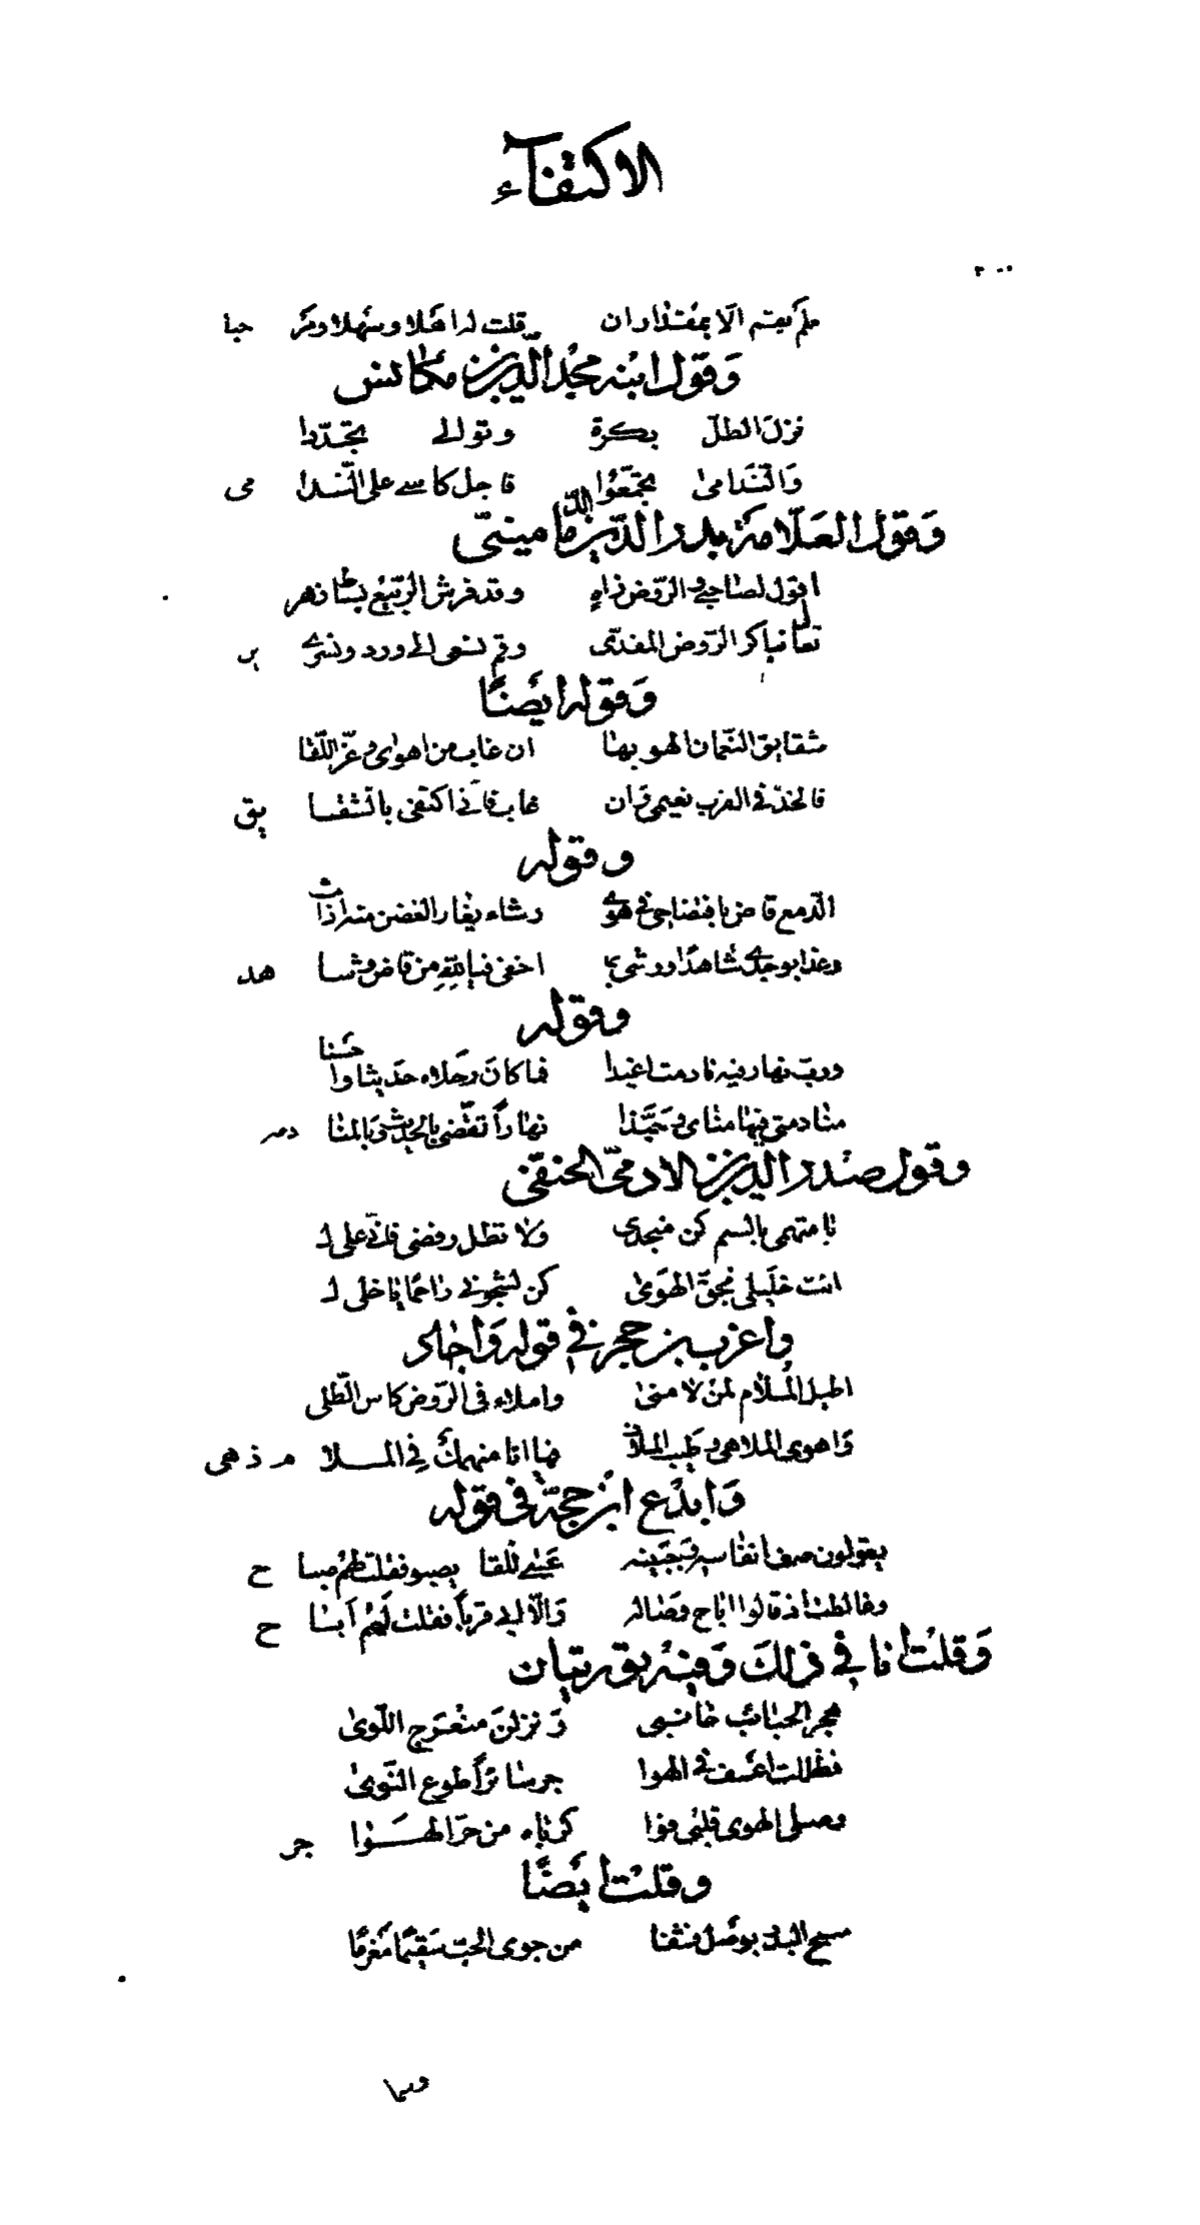 الاكتفاء
فلم يقم الا بمقدار ان قلت له اهلا وسهلا ومر حبا
وقول ابنه مجد الدين بن مكانس
نزل الطل بكرة وتوالى تجددا
والندامى تجمعوا فاجل كاسي على الندا مى
وقول العلامة بدر الدين الدماميني
اقول لصاحبي والروض زاه وقد فرش الربيع بساط زهر
تعال نباكر الروض المفدى وقم نسعى الى ورد ونسرى ن
وقوله ايضا
شقايق النعمان الهو بها ان غاب من اهوى وعز اللقا
فالخد في القرب نعيمي وان غاب فاني اكتفى بالشقا يق
وقوله
الدمع قاض بافتضاحي في هوى رشاء يغار الغصن منه اذا مشى
وغدا بوجدي شاهدا ووشى بما اخفى فيالله من قاض وشا هد
وقوله
ورب نهار فيه نادمت اغيدا فما كان احلاه حديثا واحسنا
منادمتي فيها مناى وحبذا نهارا تقضى بالحديث وبالمنا دمه
وقول صدر الدين بن الادمى الحنفى
يا متهمي بالسم كن منجدى ولا تطل رفضى فانى على ل
انت خليلى فبحق الهوى كن لشجونى راحما يا خلى ل
واغرب بن حجر في قوله واجاد
اطيل الملام لمن لامنى واملاء فى الروض كاس الطلى
واهوى الملاهى وطيب الملاذ فها انا منهمك في الملا ذهى
وابدع ابن حجة فى قوله
يقولون صف انفاسه وجبينه عسى للقا يصبو فقلت لهم صبا ح
وغالطت اذ قالوا اباح وصاله والا ابى قربا فقلت لهم ابا ح
وقلت انا في ذلك وفيه توريتان
هجر الحبائب خانبى ونزلن منعرج اللوى
فظللت اعسف في الهوا جر سائرا طوع النوى
وصلى الهوى قلبى فوا كرباه من حر الهوا جر
وقلت ايضا
سمح البدر بوصل فشفا من جوى الحب سقيما مغرما